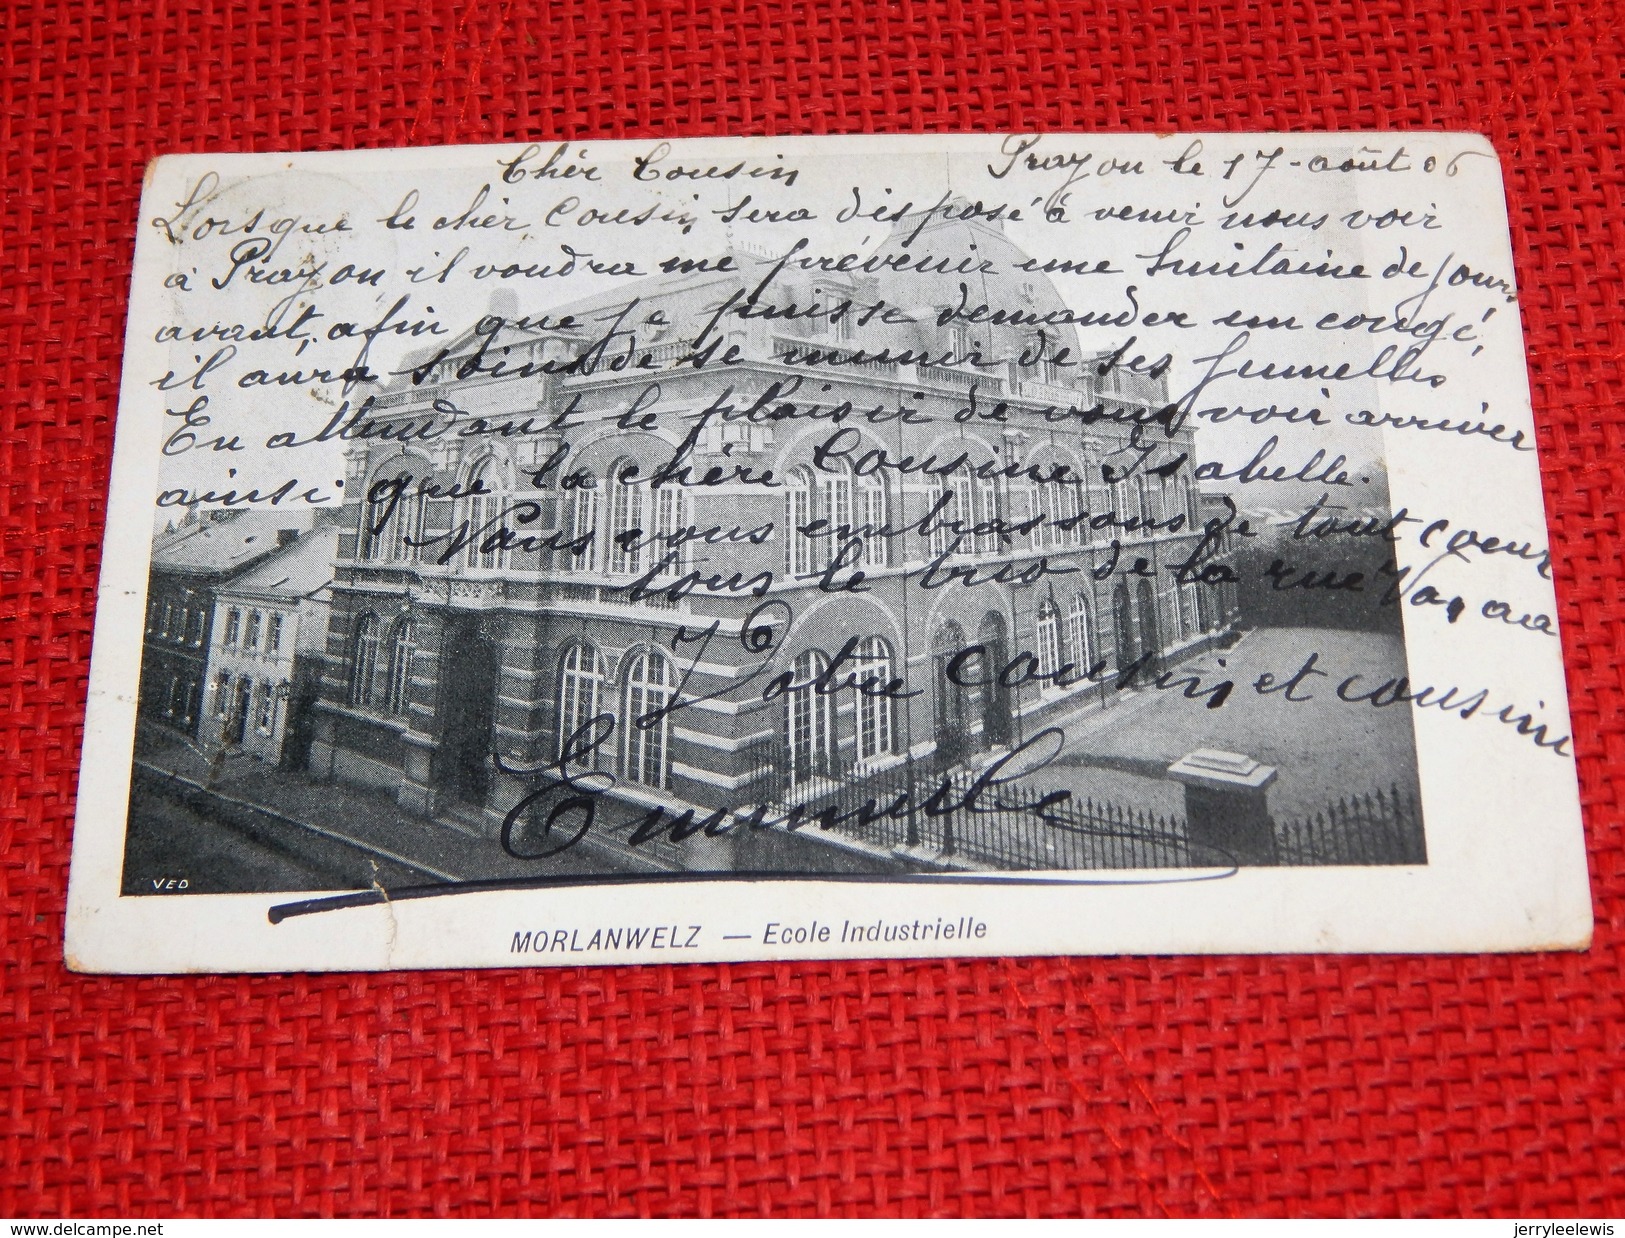 Chèr Cousin Prayon le 17-août 06
Lorsque le chèr Cousin sera disposé à venir nous voir
à Prayon il voudra me prévenir une huitaine de jours
avant, afin que je puisse demander un congé,
il aura soins de se munir de ses jumelles
En attendant le plaisir de vous voir arriver
ainsi que la chère Cousine Isabelle.
Nous vous embrassons de tout coeur
tous le trio de la rue
Votre cousin et cousine
VED
MORLANWELZ — Ecole Industrielle
www.delcampe.net
jerryleelewis